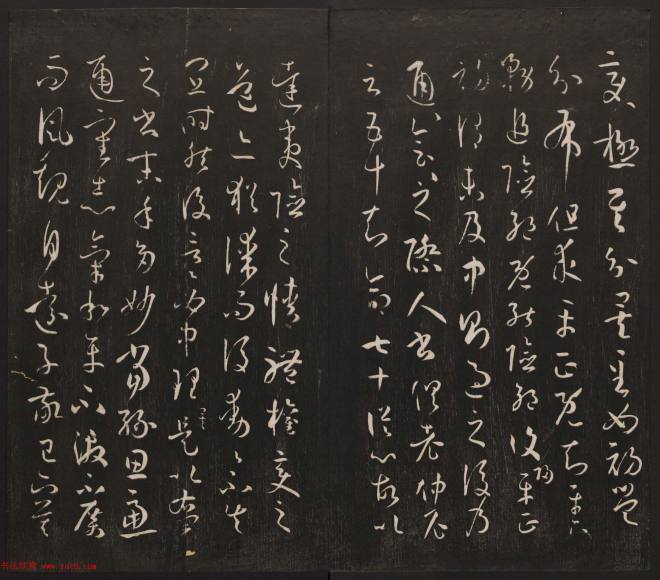 變極其分矣至如初學
分布但求平正既知平正
務追險絕既能險絕復歸平正
初謂未及中則過之後乃
通會通會之際人書俱老仲尼
云五十知命七十從心故以
達夷險之情體權變之
道亦猶謀而後動動不失
宜時然後言言必中理矣是以右軍
之書末年多妙當緣思慮
通審志氣和平不激不厲
而風規自遠子敬已下莫
书法欣赏 www.yac8.com